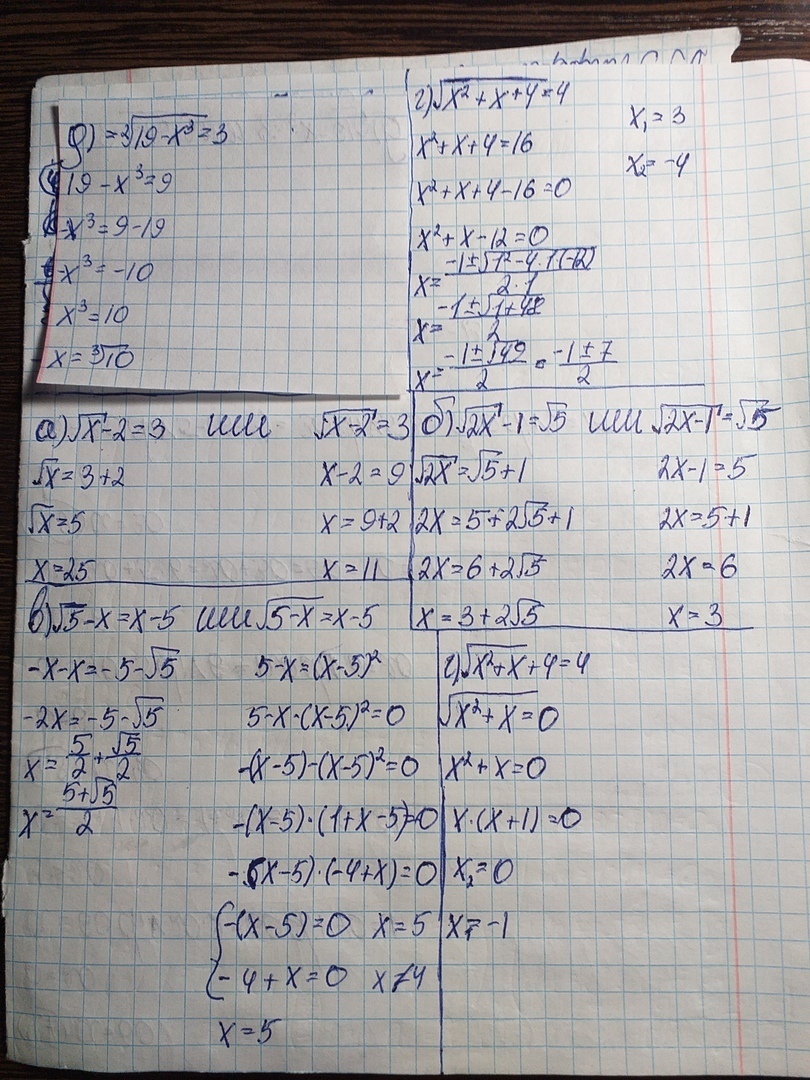 д) = ∛19-x³ = 3
19-x³=9
-x³=9-19
-x³=-10
x³=10
x=∛10
г) √x²+x+4=4
x²+x+4=16
x²+x+4-16=0
x²+x-12=0
x= -1±√1²-4·1·(-12) / 2·1
x= -1±√1+48 / 2
x= -1±√49 / 2 = -1±7 / 2
x₁=3
x₂=-4
а) √x-2=3 или √x-2=3
√x=3+2 x-2=9
√x=5 x=9+2
x=25 x=11
б) √2x-1=√5 или √2x-1=√5
√2x=√5+1 2x-1=5
2x=5+2√5+1 2x=5+1
2x=6+2√5 2x=6
x=3+2√5 x=3
в) √5-x=x-5 или √5-x=x-5
-x-x=-5-√5 5-x=(x-5)²
-2x=-5-√5 5-x-(x-5)²=0
x= 5/2 + √5/2 -(x-5)-(x-5)²=0
x= 5+√5 / 2 -(x-5)·(1+x-5)=0
-(x-5)·(-4+x)=0
{-(x-5)=0 x=5
-4+x=0 x≠4
x=5
г) √x²+x+4=4
√x²+x=0
x²+x=0
x·(x+1)=0
x₂=0
x=-1